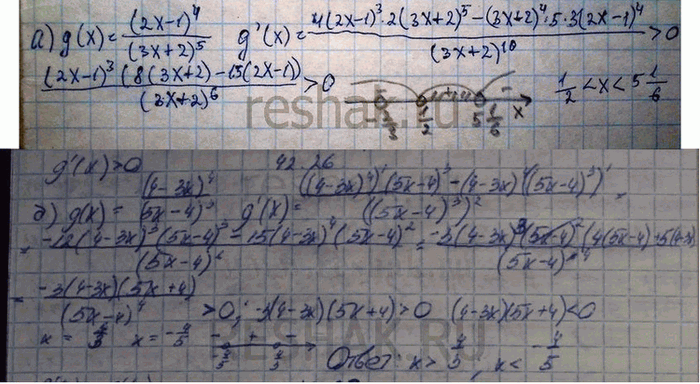 а) g(x) = (2x-1)^4 / (3x+2)^5 g'(x) = 4(2x-1)^3·2(3x+2)^5-(3x+2)^4·5·3(2x-1)^4 / (3x+2)^10 >0
(2x-1)^3(8(3x+2)-15(2x-1)) / (3x+2)^6 >0
-2/3 1/2 5 1/6 x
1/2 < x < 5 1/6
reshak.ru
g'(x)>0 42.26
д) g(x) = (4-3x)^4 / (5x-4)^3 g'(x) = ((4-3x)^4)'(5x-4)^3-(4-3x)^4((5x-4)^3)' / ((5x-4)^3)^2 =
= -12(4-3x)^3(5x-4)^3-15(4-3x)^4(5x-4)^2 / (5x-4)^6 = -3(4-3x)^3(5x-4)^2(4(5x-4)+5(4-3x)
= -3(4-3x)(5x+4) / (5x-4)^4 >0; -3(4-3x)(5x+4)>0 (4-3x)(5x+4)<0
x = x = -4/5 - + -
Ответ: x > ; x < -4/5
RESHAK.RU